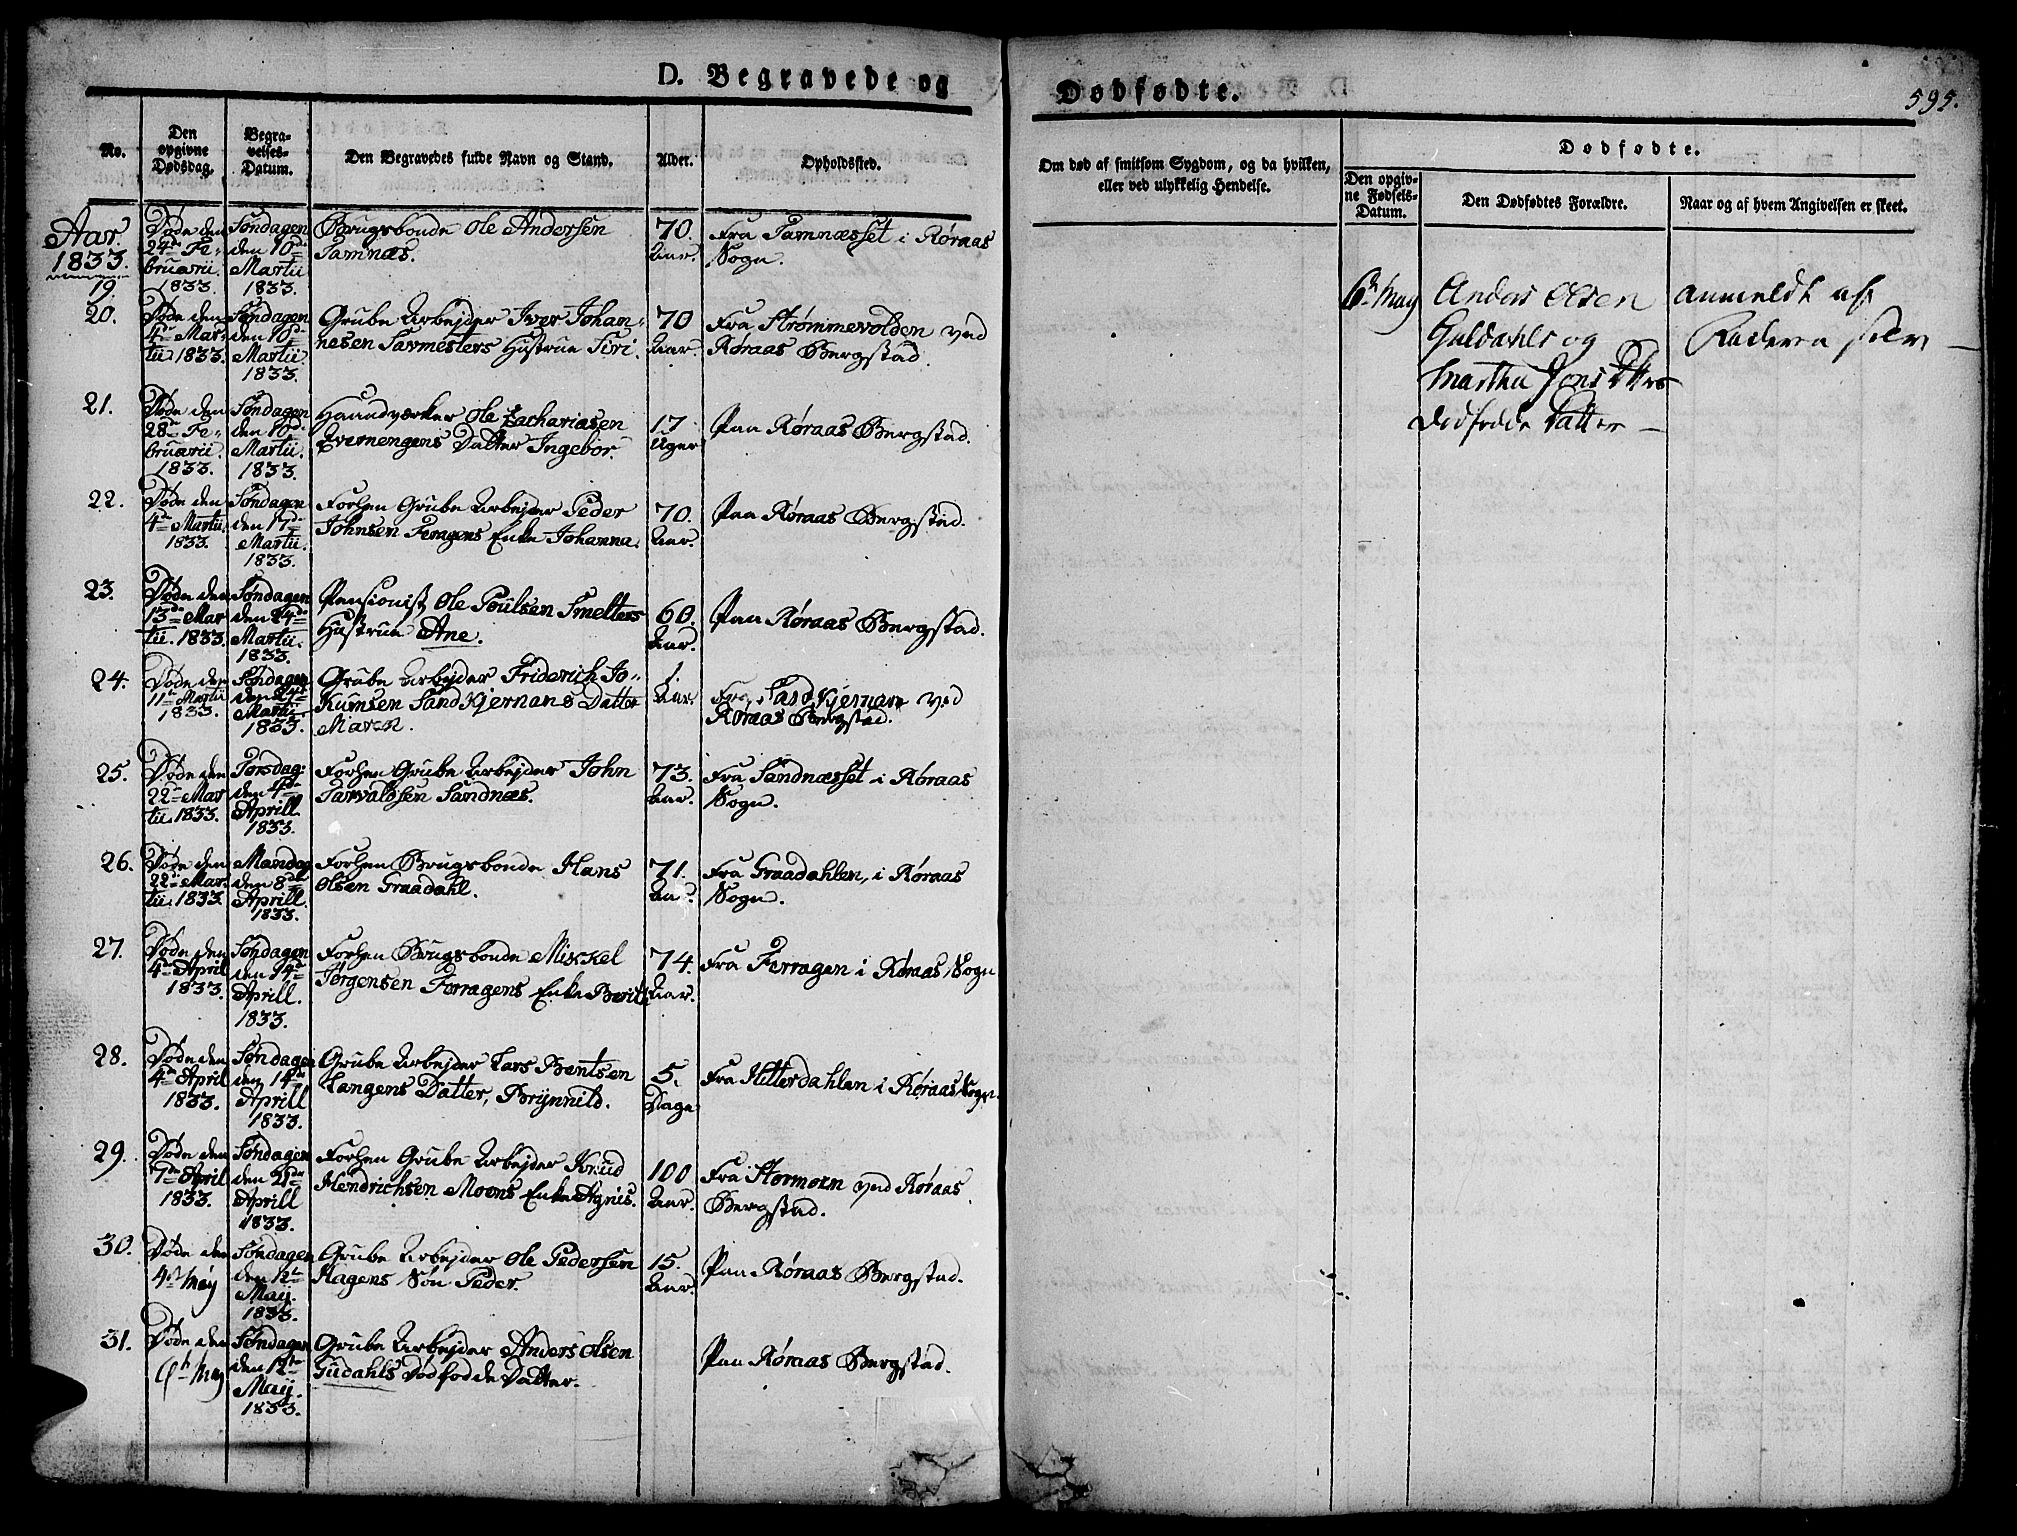 D. Begravede og
Dødfødte.
595.
No.
Den opgivne Dødsdag.
Begravelses-Datum.
Den Begravedes fulde Navn og Stand.
Alder.
Opholdssted.
Om død af smitsom Sygdom, og da hvilken,
eller ved ulykkelig Hendelse.
Dødfødte.
Den opgivne Fødsels-Datum.
Den Dødfødtes Forældre.
Naar og af hvem Angivelsen er skeet.
Aar.
1833.
19.
Døde den
24de Fe-
bruarii.
1833.
Søndagen
den 10de
Martii
1833.
Brugsbonde Ole Andersen
Tamnæs.
70.
Aar.
Fra Tamnæsset i Røraas
Sogn.
20.
Døde den
4de Mar-
tii 1833.
Søndagen
den 10de
Martii
1833.
Grube Arbejder Iver Johan-
nesen Savmesters Hustrue Siri.
70
Aar.
Fra Strømmevolden ved
Røraas Bergstad.
21.
Døde den
28de Fe-
bruarii
1833.
Søndagen
den 10de
Martii.
1833.
Haandværker Ole Zachariasen
Evernengens Datter Ingebor.
17
Uger
Paa Røraas Bergstad.
22.
Døde den
4de Martii.
1833.
Søndagen
den 17de
Martii.
1833.
Forhen Grube Arbejder Peder
Johnsen Feragens Enke Johanna.
70.
Aar.
Paa Røraas Bergstad.
23.
Døde den
13de Mar
tii. 1833.
Søndagen
den 24de
Martii.
1833.
Pensionist Ole Poulsen Smelters
Hustrue Ane.
60.
Aar.
Paa Røraas Bergstad.
24.
Døde den
11te Martii
1833.
Søndagen
den 24de
Martii
1833.
Grube Arbejder Friderich Jo-
kumsen Sandkjernans Datter
Maren.
1.
Aar.
Fra Sandkjernan ved
Røraas Bergstad.
25.
Døde den
22de Mar
tii. 1833.
Torsdag:
den 4de
Aprill
1833.
Forhen Grube Arbejder John
Tarvaldsen Sandnæs.
73.
Aar.
Fra Sandnæsset i Røraas
Sogn.
26.
Døde den
22de Mar.
tii. 1833.
Mandag
den 8de
Aprill.
1833.
Forhen Brugsbonde Hans
Olsen Graadahl.
71.
Aar.
Fra Graadahlen, i Røraas
Sogn.
27.
Døde den
4de April
1833.
Søndagen
den 14de
Aprill.
1833.
Forhen Brugsbonde Mikkel
Jørgensen Ferragens Enke Berit.
74.
Aar.
Fra Ferragen i Røraas Sogn
28.
Døde den
4de April
1833.
Søndagen
den 14de
Aprill
1833.
Grube Arbejder Lars Bentsen
Langens Datter, Brynnild.
5.
Dage
Fra Hitterdahlen i Røraas Sogn.
29.
Døde den
7de April
1833.
Søndagen
den 21de
Aprill
1833.
Forhen Grube Arbejder Knud
Hendrichsen Moens Enke Agnis.
100
Aar.
Fra Stormoen ved Røraas
Bergstad.
30.
Døde den
4de Maÿ
Søndagen
den 12te
Maij.
1833.
Grube Arbejder Ole Pedersen
Hagens Søn Peder.
15.
Aar.
Paa Røraas Bergstad.
31.
Døde den
6te Maÿ
Søndagen
den 12te
Maij.
1833.
Grube Arbejder Anders Olsen
Gudahls Dødfødde Datter.
Paa Røraas Bergstad.
6te Maÿ
Anders Olsen
Guldahls og
Martha Jons Dtters
dødfødde Datter —
anmeldt af
Faderen selv —